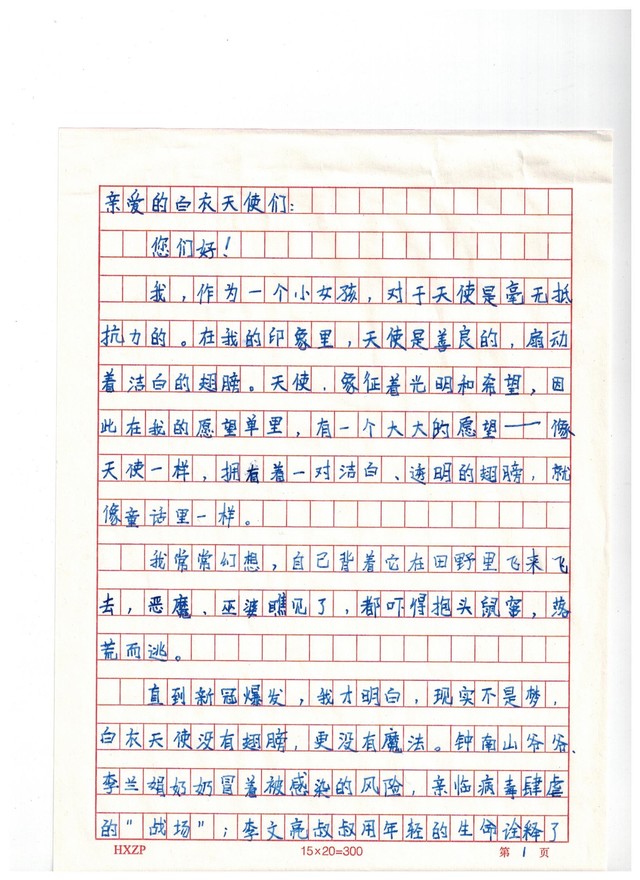 亲爱的白衣天使们:
您们好!
我,作为一个小女孩,对于天使是毫无抵
抗力的。在我的印象里,天使是善良的,扇动
着洁白的翅膀。天使,象征着光明和希望,因
此在我的愿望单里,有一个大大的愿望——像
天使一样,拥有着一对洁白、透明的翅膀,就
像童话里一样。
我常常幻想,自己背着它在田野里飞来飞
去,恶魔、巫婆瞧见了,都吓得抱头鼠窜,落
荒而逃。
直到新冠爆发,我才明白,现实不是梦,
白衣天使没有翅膀,更没有魔法。钟南山爷爷、
李兰娟奶奶冒着被感染的风险,亲临病毒肆虐
的"战场";李文亮叔叔用年轻的生命诠释了
HXZP 15×20=300 第 1 页